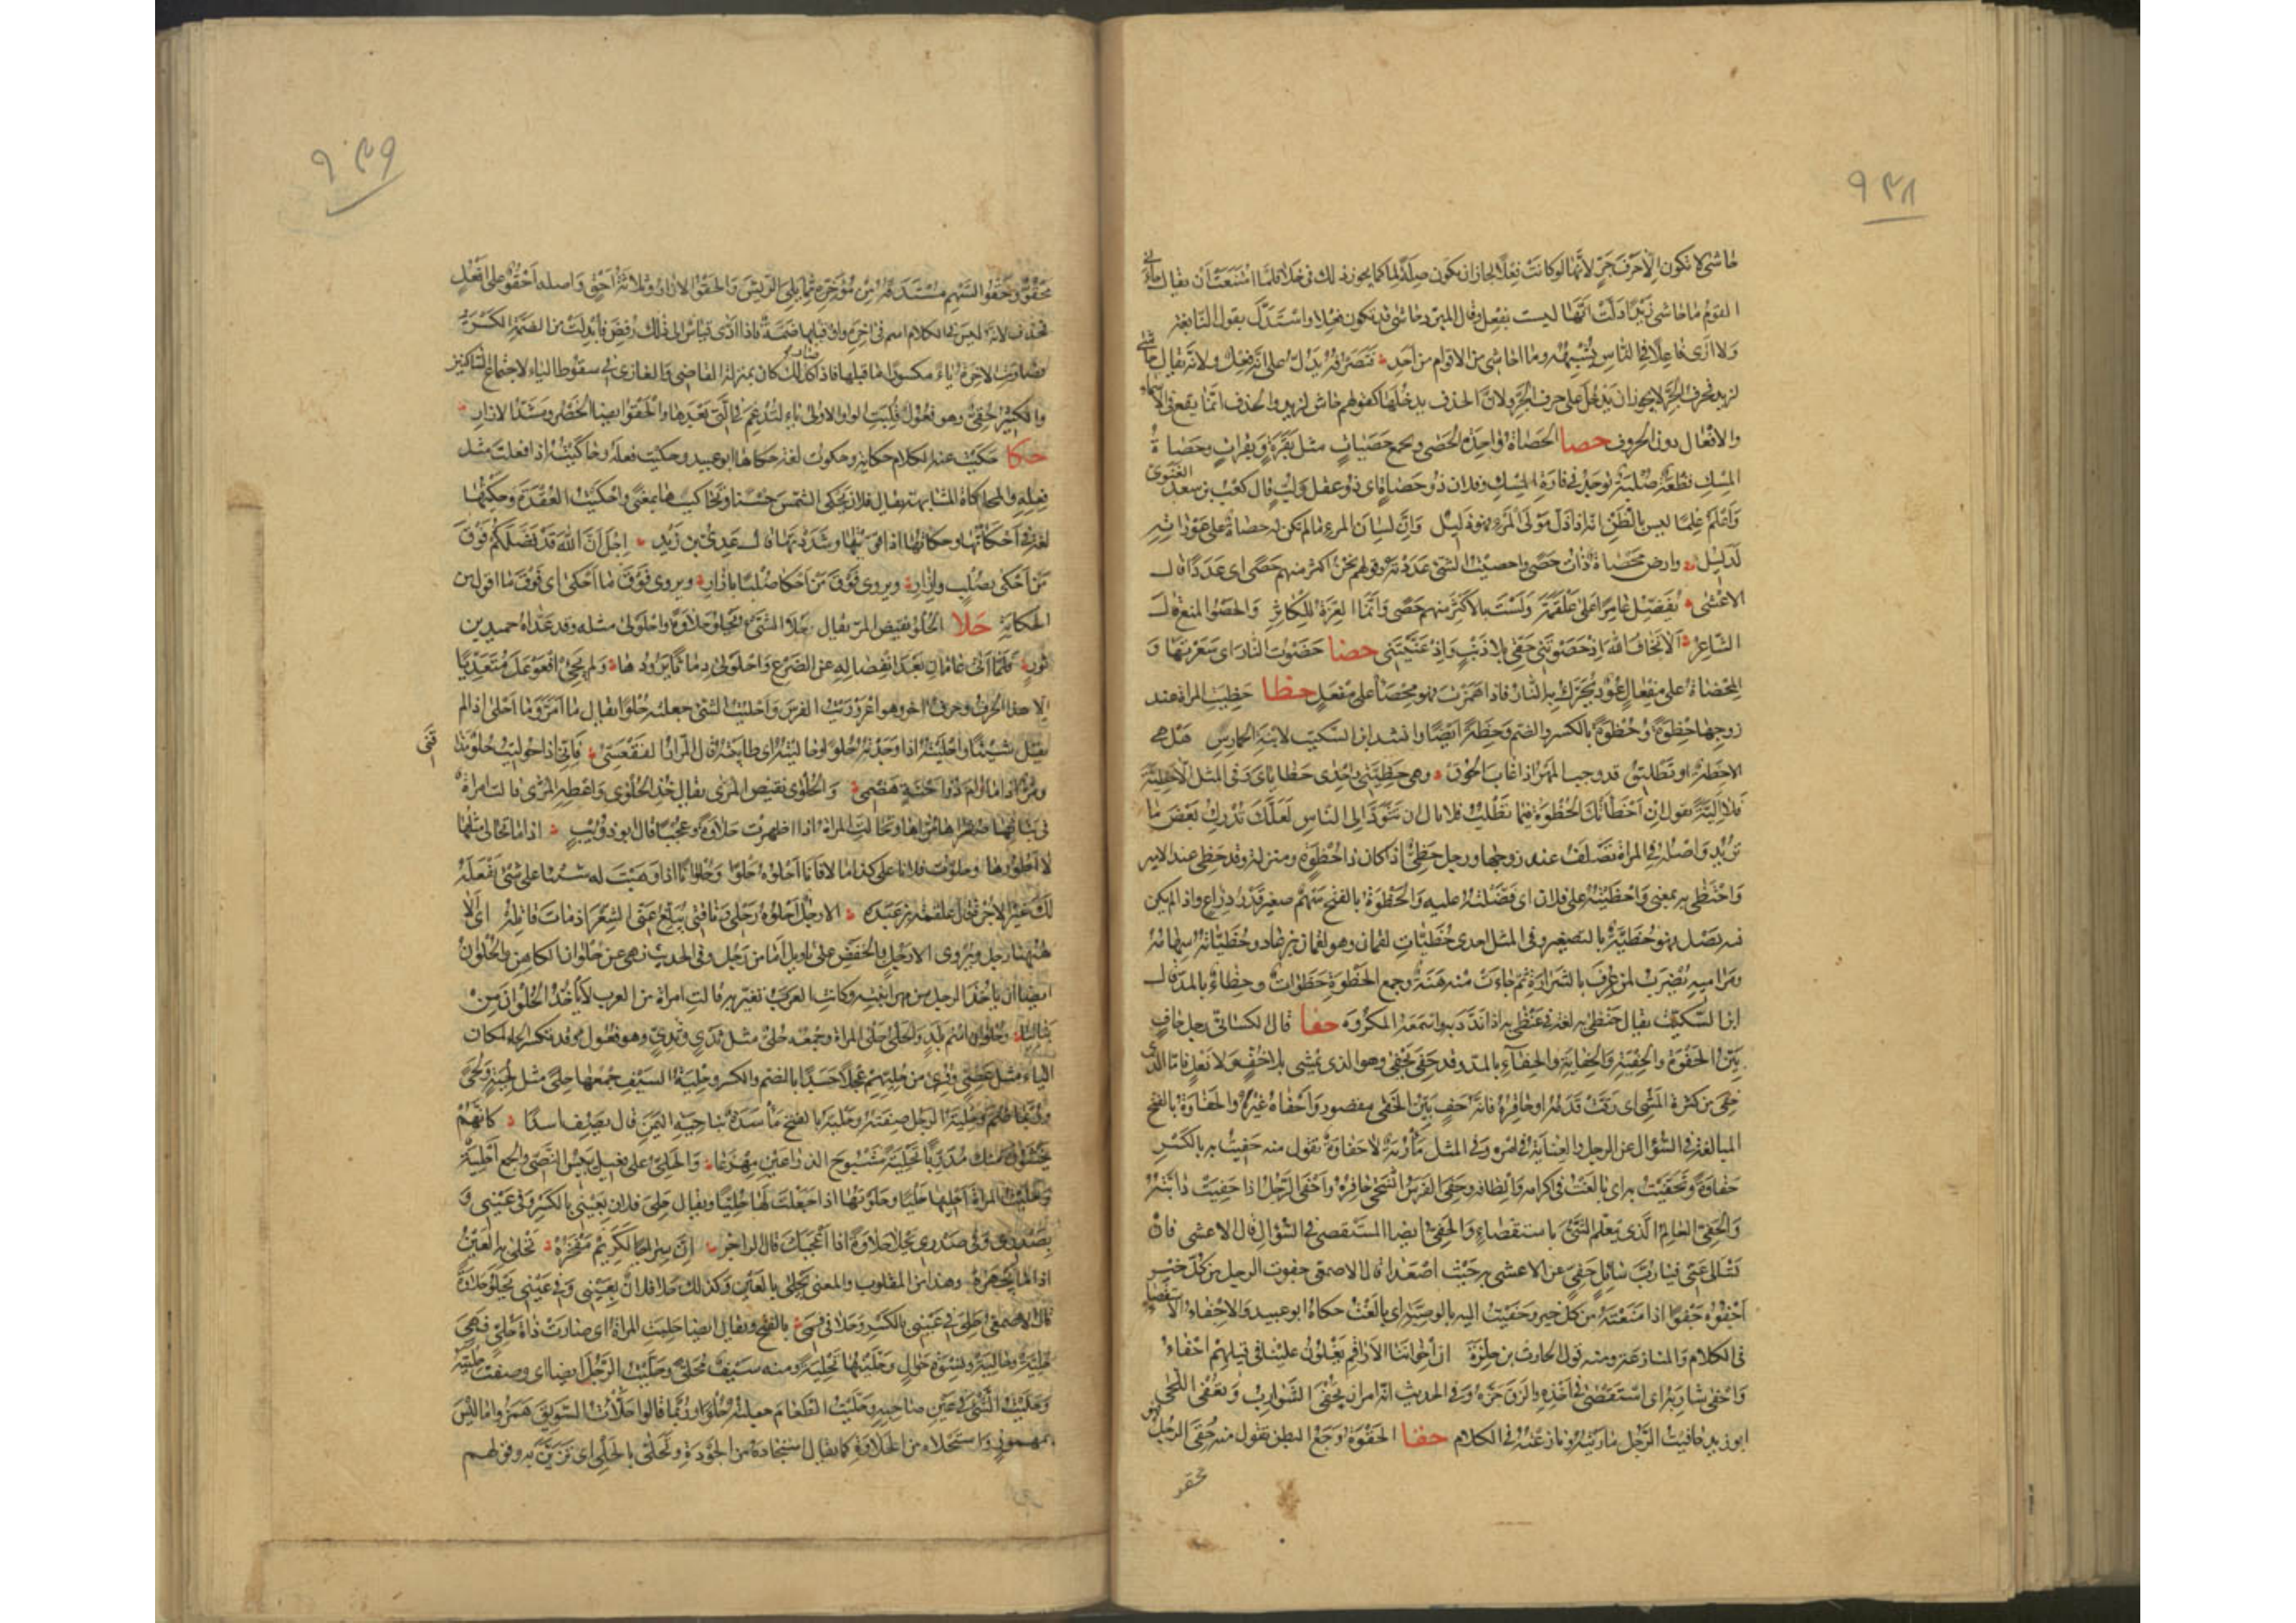 ٩٣٨
حاشى لا تكون الا حرف جر لانها لو كانت فعلا لجاز ان يكون صلة لما كما يجوز ذلك فى خلا فلما امتنعت ان يقال جاءنى
القوم ما حاشى زيدا دلت انها ليست بفعل وقال المبرد حاشى قد تكون فعلا واستدل بقول النابغة
ولا ارى فاعلا فى الناس يشبهه وما احاشى من الاقوام من احد فتصرفه يدل على انه فعل ولانه يقال حاشى
لزيد فحرف الجر لا يجوز ان يدخل على حرف الجر ولان الحذف يدخلها كقولهم حاش لزيد والحذف انما يقع فى الاسماء
والافعال دون الحروف حصا الحصاة واحدة الحصى ويجمع حصيات مثل بقرة وبقرات وحصاة
المسك قطعة صلبة توجد فى فارة المسك وفلان ذو حصاة اى ذو عقل ولب قال كعب بن سعد الغنوى
واعلم علما ليس بالظن انه اذا ذل مولى المرء فهو ذليل وان لسان المرء ما لم تكن له حصاة على عوراته
لدليل وارض محصاة ذات حصى واحصيت الشئ عددته وقولهم نحن اكثر منهم حصى اى عددا قال
الاعشى يفضل عامرا على علقمة ولست بالاكثر منهم حصى وانما العزة للكاثر والحصو المنع قال
الشاعر الا تخاف الله اذ حصوتنى حقى بلا ذنب واذ عنيتنى حضا حضوت النار اى سعرتها و
المحضاة على مفعال عود يحرك به النار فاذا همزت فهو محضأ على مفعل حظا حظيت المراة عند
زوجها حظوة وحظوة بالكسر والضم وحظة ايضا وانشد ابن السكيت لابنة الحمارس هل هى
الا حظة او تطليق قد وجب المهر اذا غاب الحوق وهى حظيتى واحدى حظاياى وفى المثل الا حظية
فلا الية تقول ان اخطأتك الحظوة فيما تطلب فلا تال ان تتودد الى الناس لعلك تدرك بعض ما
تريد واصله فى المراة تصلف عند زوجها ورجل حظى اذا كان ذا حظوة ومنزلة وقد حظى عند الامير
واحتظى به بمعنى واحظيته على فلان اى فضلته عليه والحظوة بالفتح سهم صغير قدر ذراع واذا لم يكن
فيه نصل فهو حظية بالتصغير وفى المثل احدى حظيات لقمان وهو لقمان بن عاد وحظياته سهامه
ومراميه يضرب لمن عرف بالشرارة ثم جاءت منه هنة وجمع الحظوة حظوات وحظاء بالمد قال
ابن السكيت يقال حنظى به لغة فى عنظى به اذا ندد به واسمعه المكروه حفا قال الكسائى رجل حاف
بين الحفوة والحفية والحفاية والحفاء بالمد وقد حفى يحفى وهو الذى يمشى بلا خف ولا نعل فاما الذى
حفى من كثرة المشى اى رقت قدمه او حافره فانه حف بين الحفى مقصور واحفاه غيره والحفاوة بالفتح
المبالغة فى السؤال عن الرجل والعناية فى امره وفى المثل مأربة لا حفاوة تقول منه حفيت به بالكسر
حفاوة وتحفيت به اى بالغت فى اكرامه والطافه وحفى الفرس انسحج حافره واحفى الرجل اذا حفيت دابته
والحفى العالم الذى يتعلم الشئ باستقصاء والحفى ايضا المستقصى فى السؤال قال الاعشى فان
تسألى عنى فيا رب سائل حفى عن الاعشى به حيث اصعدا قال الاصمعى حفوت الرجل من كل خير
احفوه حفوا اذا منعته من كل خير وحفيت اليه بالوصية اى بالغت حكاه ابو عبيد والاحفاء الاستقصاء
فى الكلام والمنازعة ومنه قول الحارث بن حلزة ان اخواننا الاراقم يغلون علينا فى قيلهم احفاء
واحفى شاربه اى استقصى فى اخذه والزق جزه وفى الحديث انه امر ان يحفى الشوارب ويعفى اللحى
ابو زيد حافيت الرجل ماريته ونازعته فى الكلام حقا الحقوة وجع البطن تقول منه حقى الرجل فهو
محقو
٩٣٩
محقو وحقو السهم مستدقه من مؤخره مما يلى الريش والحقو الازار وثلاثة احق واصله احقو على افعل
فحذف لانه ليس فى الكلام اسم فى اخره واو قبلها ضمة فاذا ادى قياس الى ذلك رفض فابدلت من الضمة الكسرة
فصارت الاخرة ياء مكسورا ما قبلها فاذا كان كذلك كان بمنزلة القاضى والغازى فى سقوط الياء لاجتماع الساكنين
والكثير الحقى وهو فعول قلبت الواو الاولى ياء لتدغم فى التى بعدها والحقو ايضا الخصر ومشد الازار
حكا حكيت عنه الكلام حكاية وحكوت لغة حكاها ابو عبيد وحكيت فعله وحاكيته اذا فعلت مثل
فعله والمحاكاة المشابهة يقال فلان يحكى الشمس حسنا ويحاكيها بمعنى واحكيت العقدة وحكيتها
لغة فى احكأتها وحكأتها اذا قويتها وشددتها قال عدى بن زيد اجل ان الله قد فضلكم فوق
من احكى بصلب وازار ويروى فوق من احكأ صلبا بازار ويروى فوق ما احكى اى فوق ما اقول من
الحكاية حلا الحلو نقيض المر يقال حلا الشئ يحلو حلاوة واحلولى مثله وقد عداه حميد بن
ثور فلما اتى عامان بعد انفصاله عن الضرع واحلولى دماثا يرودها ولم يجئ افعوعل متعديا
الا هذا الحرف وحرف اخر وهو اعروريت الفرس واحليت الشئ جعلته حلوا يقال ما امر وما احلى اذا لم
يقل شيئا واحليته اذا وجدته حلوا وحاليته اى طايبته قال المرار الفقعسى فانى اذا حوليت حلو مذاقتى
ومر اذا ما رام ذو احنة هضمى والحلوى نقيض المرى يقال خذ الحلوى واعطه المرى قالت امراة
فى بناتها صغراها مراها وتحالت المراة اذا اظهرت حلاوة وعجبا قال ابو ذؤيب اذا ما تحالى مثلها
لا اطورها وحلوت فلانا على كذا مالا فانا احلوه حلوا وحلوانا اذا وهبت له شيئا على شئ يفعله
لك غير الاجر قال علقمة بن عبدة الا رجل احلوه رحلى وناقتى يبلغ عنى الشعر اذ مات قائله اى الا
ههنا رجل ويروى الا رجل بالخفض على تاويل اما من رجل وفى الحديث نهى عن حلوان الكاهن والحلوان
ايضا ان ياخذ الرجل من مهر ابنته وكانت العرب تعير به قالت امراة من العرب لا ياخذ الحلوان من
بناتنا وحلوان اسم بلد والحلى حلى المراة وجمعه حلى مثل ثدى وثدى وهو فعول وقد تكسر الحاء لمكان
الياء مثل عصى وقرئ من حليهم عجلا جسدا بالضم والكسر وحلية السيف جمعها حلى مثل لحية ولحى
وربما ضم وحلية الرجل صفته وحلية بالفتح مأسدة بناحية اليمن قال يصف اسدا كانهم
يخشون منك مدربا بحلية مشبوح الذراعين مهزعا والحلى على فعيل يبيس النصى والجمع احلية
وحليت المراة احليها حليا وحلوتها اذا جعلت لها حليا ويقال حلى فلان بعينى بالكسر وفى عينى و
بصدرى وفى صدرى يحلى حلاوة اذا اعجبك قال الراجز ان سراجا لكريم مفخره تحلى به العين
اذا ما تجهره وهذا من المقلوب والمعنى يحلى بالعين وكذلك حلا فلان بعينى وفى عينى يحلو حلاوة
قال الاصمعى حلى فى عينى بالكسر وحلا فى فمى بالفتح ويقال ايضا حليت المراة اى صارت ذات حلى فهى
حلية وحالية ونسوة حوال وحليتها تحلية ومنه سيف محلى وحليت الرجل ايضا اى وصفت حليته
وحليت الشئ فى عين صاحبه وحليت الطعام جعلته حلوا وربما قالوا حلأت السويق همزوا ما ليس
بمهموز واستحلاه من الحلاوة كما يقال استجاده من الجودة وتحلى بالحلى اى تزين به وقولهم